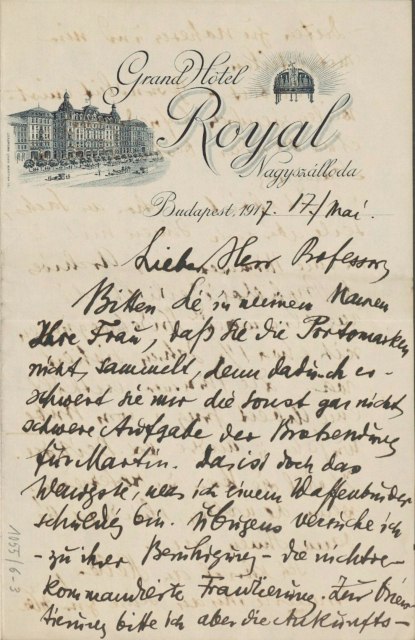 Grand Hôtel
Royal
Nagyszálloda
Budapest, 1917. 17/Mai.
Lieber Herr Professor,
Bitten Sie in meinem Namen
Ihre Frau, daß Sie die Portomarken
nicht sammelt, denn dadurch er-
schwert sie mir die sonst gar nicht
schwere Aufgabe der Brotsendung
für Martin. Das ist doch das
Wenigste, was ich einem Waffenbruder
schuldig bin. Übrigens versuche ich
- zu ihrer Beruhigung - die nichtre-
kommandierte Frankierung. Zur Orien-
tierung bitte ich aber die Ankunfts-
1055/6-3